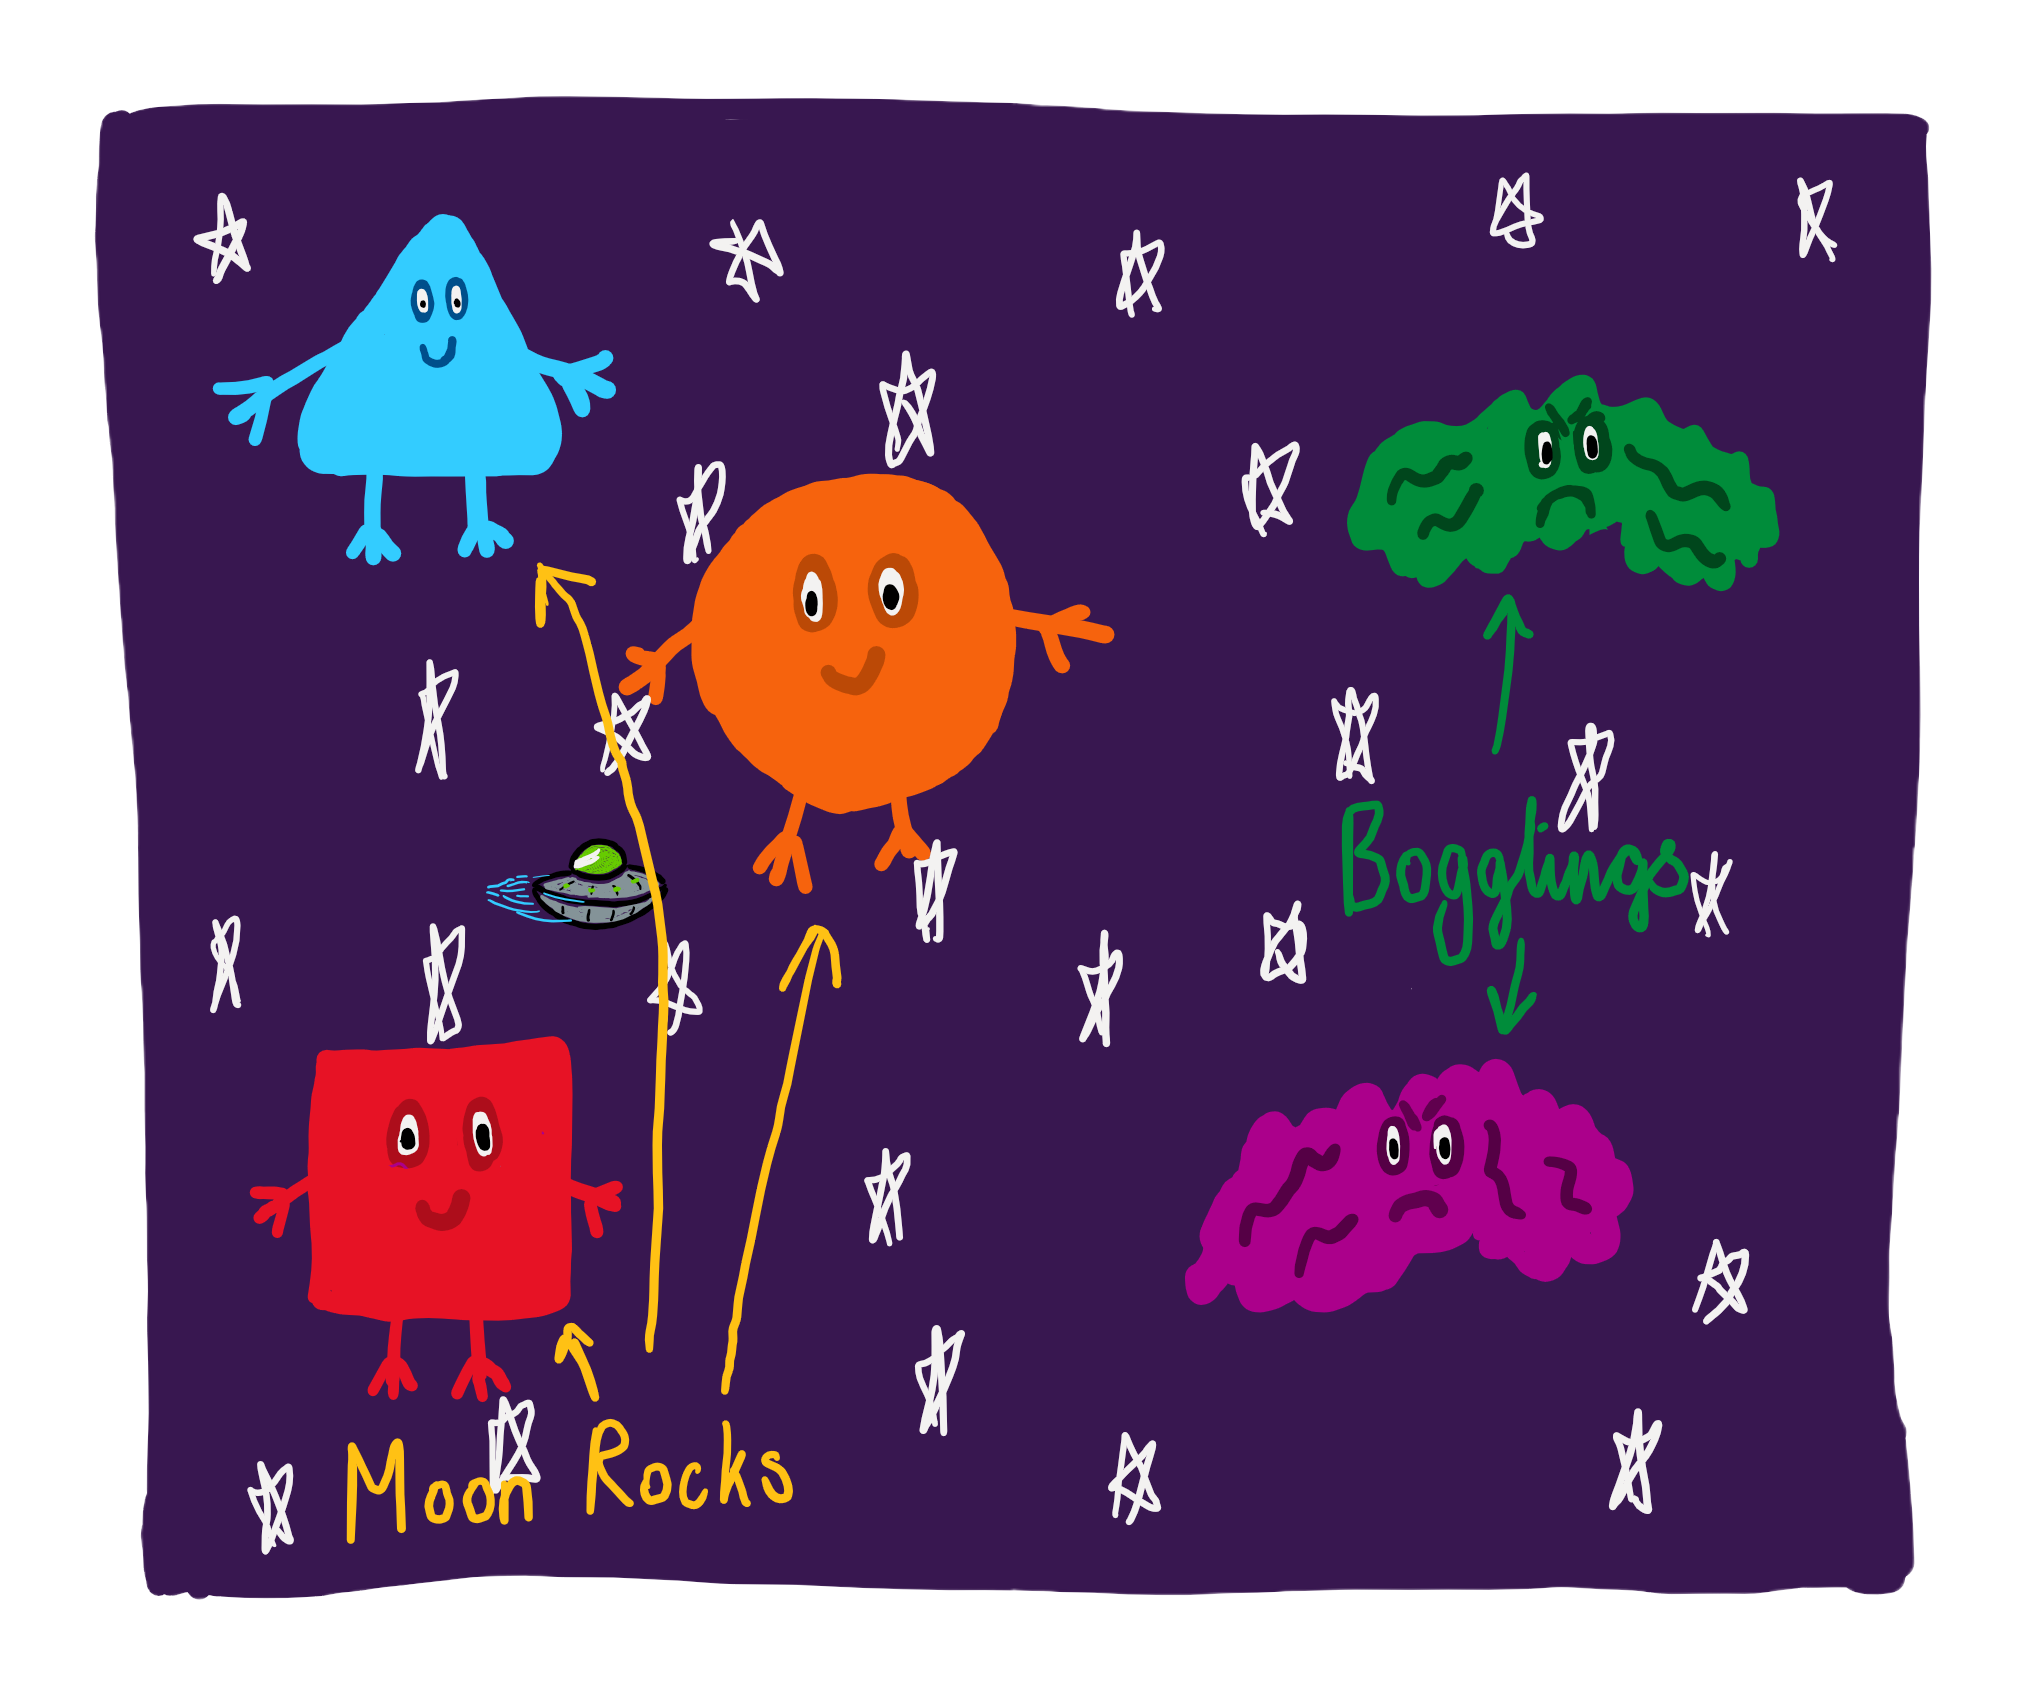 Bogglings
Moon Rocks